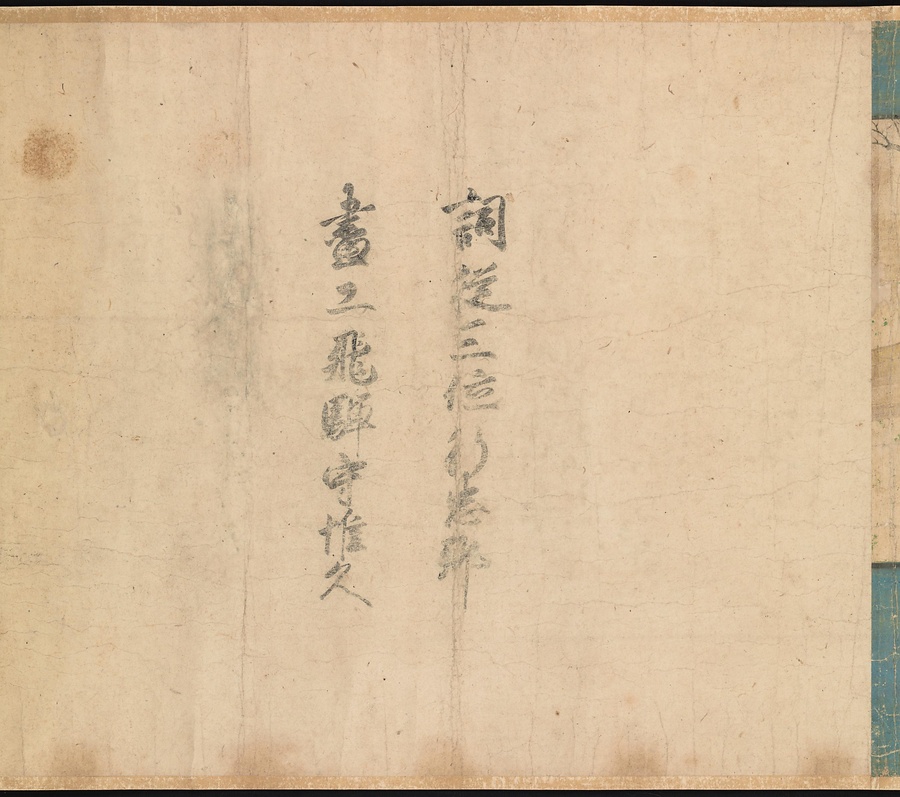 詞從三位行忠卿
畫工飛驒守惟久